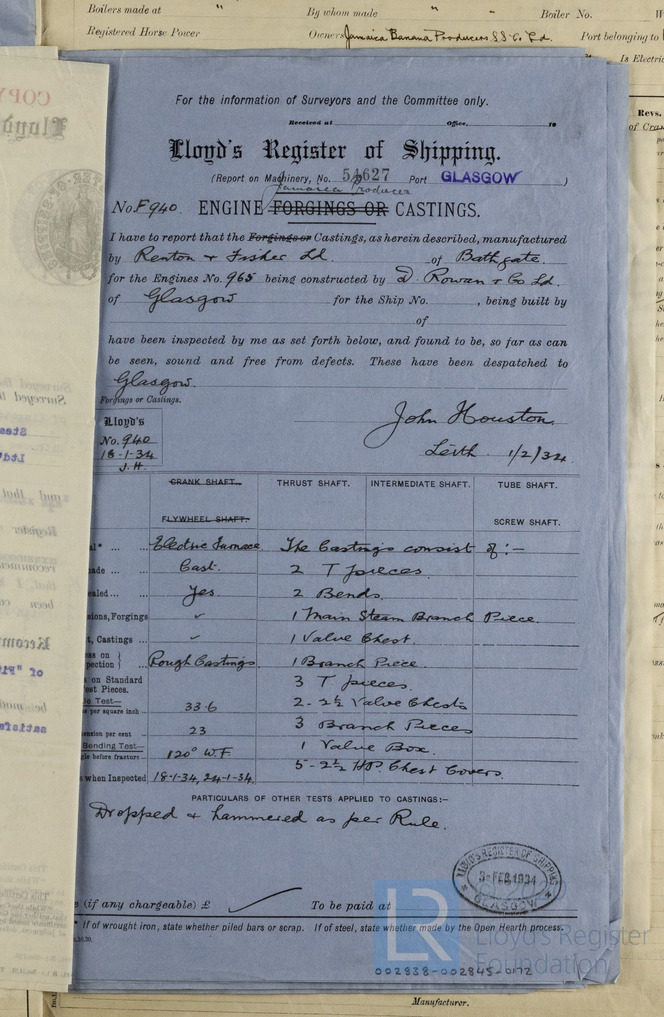 Boilers made at " By whom made " " Boiler No.
Registered Horse Power Owners Jamaica Banana Producers S.S. Co. Ld. Port belonging to
Is Electric
For the information of Surveyors and the Committee only.
Received at Office, 19
Lloyd's Register of Shipping.
(Report on Machinery, No. 54627 Port GLASGOW )
Jamaica Producer
No. F 940. ENGINE FORGINGS OR CASTINGS.
I have to report that the Forgings or Castings, as herein described, manufactured
by Renton & Fisher Ld. of Bathgate.
for the Engines No. 965 being constructed by D. Rowan & Co Ld.
of Glasgow for the Ship No. , being built by
of
have been inspected by me as set forth below, and found to be, so far as can
be seen, sound and free from defects. These have been despatched to
Glasgow.
Forgings or Castings.
Lloyd's
No. 940
18-1-34
J.H.
John Houston.
Leith. 1/2/34
CRANK SHAFT. THRUST SHAFT. INTERMEDIATE SHAFT. TUBE SHAFT.
FLYWHEEL SHAFT. SCREW SHAFT.
al* ... ... Electric Furnace The Castings consist of :-
ade ... ... Cast. 2 T pieces.
ealed... ... Yes. 2 Bends.
sions, Forgings ✓ 1 Main Steam Branch Piece.
t, Castings ... ✓ 1 Valve Chest.
ss on }
pection } ... Rough Castings 1 Branch Piece.
s on Standard 3 T pieces.
est Pieces.
le Test— 33.6 2 - 2½ Valve Chests
s per square inch ...
ension per cent ... 23 3 Branch Pieces
Bending Test— 120° W.F. 1 Valve Box.
gle before fracture ...
5 - 2½ HP Chest Covers.
s when Inspected 18-1-34, 24-1-34.
PARTICULARS OF OTHER TESTS APPLIED TO CASTINGS:—
Dropped & hammered as per Rule.
LLOYD'S REGISTER OF SHIPPING
FEB 1934
GLASGOW
e (if any chargeable) £ ✓ To be paid at
* If of wrought iron, state whether piled bars or scrap. If of steel, state whether made by the Open Hearth process.
LR Lloyd's Register
Foundation
002838-002845-0172
Manufacturer.
Revs.
of Cra